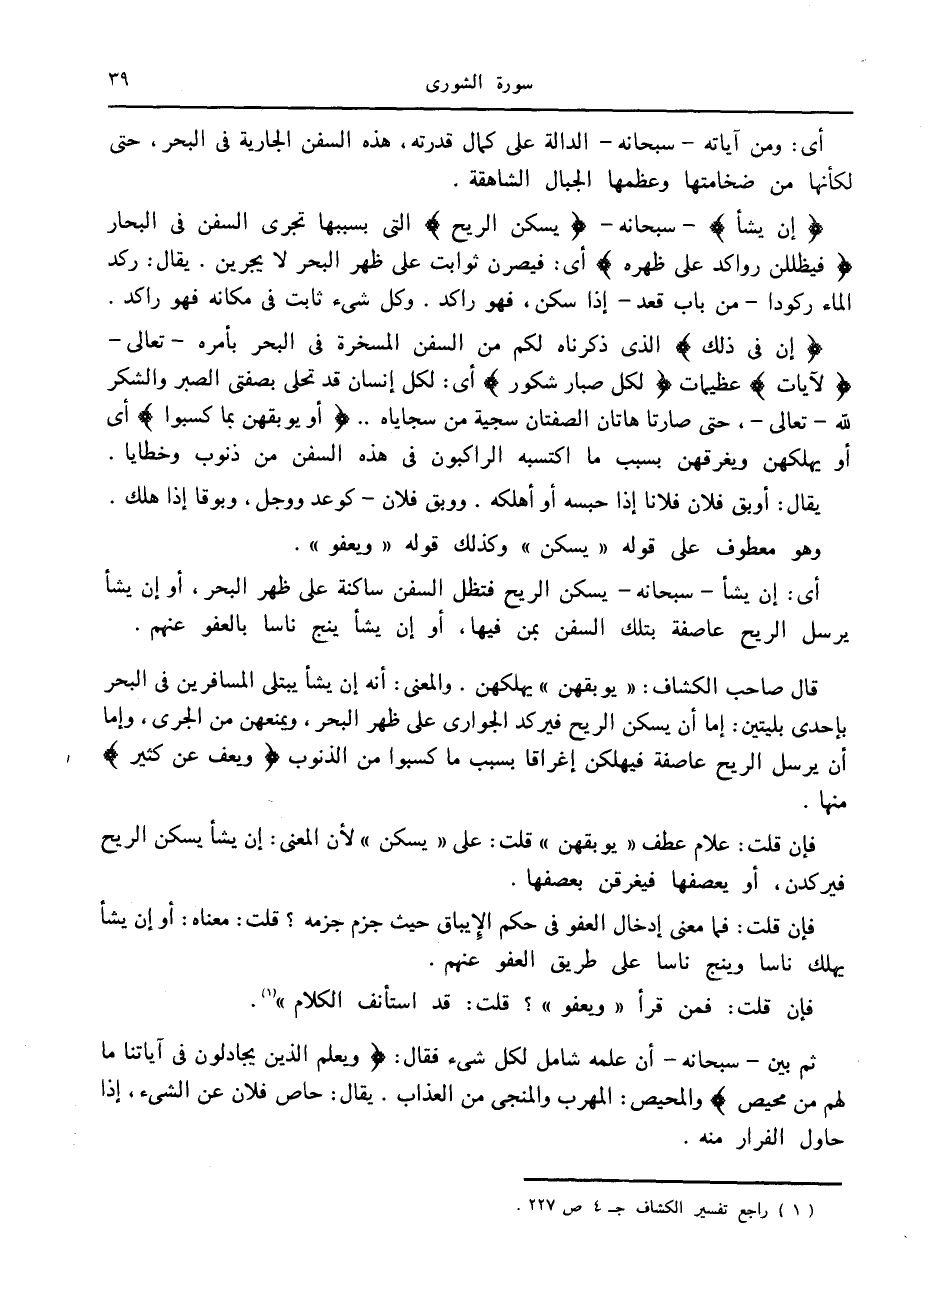 سورة الشورى ٣٩
أى: ومن آياته - سبحانه - الدالة على كمال قدرته، هذه السفن الجارية فى البحر، حتى
لكأنها من ضخامتها وعظمها الجبال الشاهقة .
﴿ إن يشأ ﴾ - سبحانه - ﴿ يسكن الريح ﴾ التى بسببها تجرى السفن فى البحار
﴿ فيظللن رواكد على ظهره ﴾ أى: فيصرن ثوابت على ظهر البحر لا يجرين . يقال: ركد
الماء ركودا - من باب قعد - إذا سكن، فهو راكد . وكل شىء ثابت فى مكانه فهو راكد .
﴿ إن فى ذلك ﴾ الذى ذكرناه لكم من السفن المسخرة فى البحر بأمره - تعالى -
﴿ لآيات ﴾ عظيمات ﴿ لكل صبار شكور ﴾ أى: لكل إنسان قد تحلى بصفتى الصبر والشكر
لله - تعالى -، حتى صارتا هاتان الصفتان سجية من سجاياه .. ﴿ أو يوبقهن بما كسبوا ﴾ أى
أو يهلكهن ويغرقهن بسبب ما اكتسبه الراكبون فى هذه السفن من ذنوب وخطايا .
يقال: أوبق فلان فلانا إذا حبسه أو أهلكه . ووبق فلان - كوعد ووجل، وبوقا إذا هلك .
وهو معطوف على قوله « يسكن » وكذلك قوله « ويعفو » .
أى: إن يشأ - سبحانه - يسكن الريح فتظل السفن ساكنة على ظهر البحر، أو إن يشأ
يرسل الريح عاصفة بتلك السفن بمن فيها، أو إن يشأ ينج ناسا بالعفو عنهم .
قال صاحب الكشاف: « يوبقهن » يهلكهن . والمعنى: أنه إن يشأ يبتلى المسافرين فى البحر
بإحدى بليتين: إما أن يسكن الريح فيركد الجوارى على ظهر البحر، ويمنعهن من الجرى، وإما
أن يرسل الريح عاصفة فيهلكن إغراقا بسبب ما كسبوا من الذنوب ﴿ ويعف عن كثير ﴾
منها .
فإن قلت: علام عطف « يوبقهن » قلت: على « يسكن » لأن المعنى: إن يشأ يسكن الريح
فيركدن، أو يعصفها فيغرقن بعصفها .
فإن قلت: فما معنى إدخال العفو فى حكم الإيباق حيث جزم جزمه ؟ قلت: معناه: أو إن يشأ
يهلك ناسا وينج ناسا على طريق العفو عنهم .
فإن قلت: فمن قرأ « ويعفو » ؟ قلت: قد استأنف الكلام »(١) .
ثم بين - سبحانه - أن علمه شامل لكل شىء فقال: ﴿ ويعلم الذين يجادلون فى آياتنا ما
لهم من محيص ﴾ والمحيص: المهرب والمنجى من العذاب . يقال: حاص فلان عن الشىء، إذا
حاول الفرار منه .
( ١ ) راجع تفسير الكشاف جـ ٤ ص ٢٢٧ .